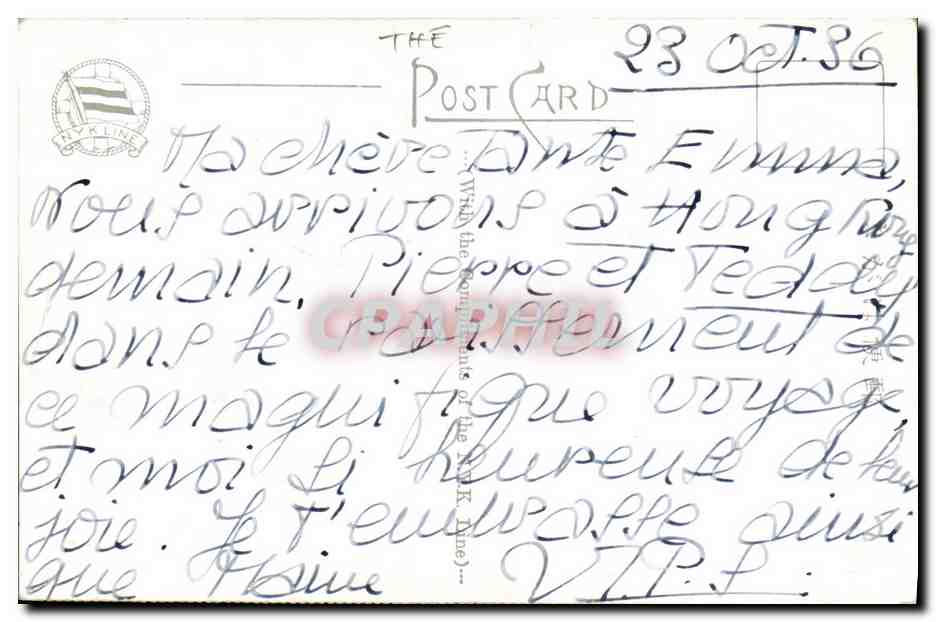 THE
23 Oct. 36
POST CARD
N.Y.K. LINE
Ma chère Tante Emma,
Nous arrivons à Hong Kong
demain. Pierre et Teddy
dans le ravissement de
ce magnifique voyage,
et moi si heureuse de leur
joie. Je t'embrasse ainsi
que
V.T.P.S.
...(With the Compliments of the N.Y.K. Line)...
CPAPHIL